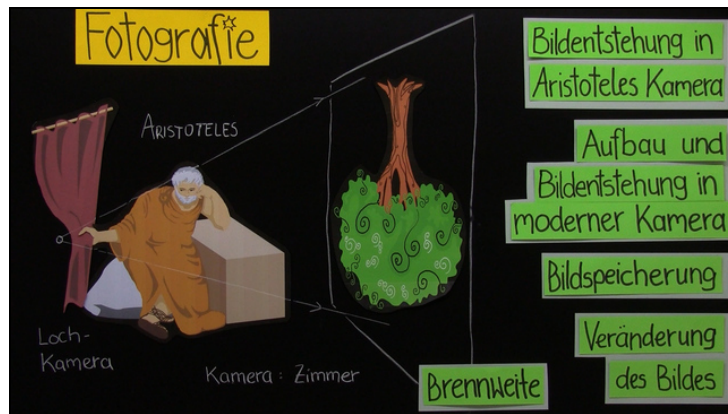 Fotografie
ARISTOTELES
Loch-
Kamera
Kamera: Zimmer
Bildentstehung in
Aristoteles Kamera
Aufbau und
Bildentstehung in
moderner Kamera
Bildspeicherung
Veränderung
des Bildes
Brennweite